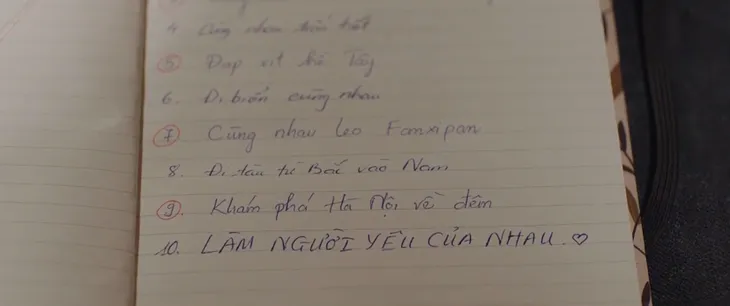 4. Cùng nhau trốn tiết
5. Đạp vịt hồ Tây
6. Đi biển cùng nhau
7. Cùng nhau leo Fanxipan
8. Đi tàu từ Bắc vào Nam
9. Khám phá Hà Nội về đêm
10. LÀM NGƯỜI YÊU CỦA NHAU. ♡